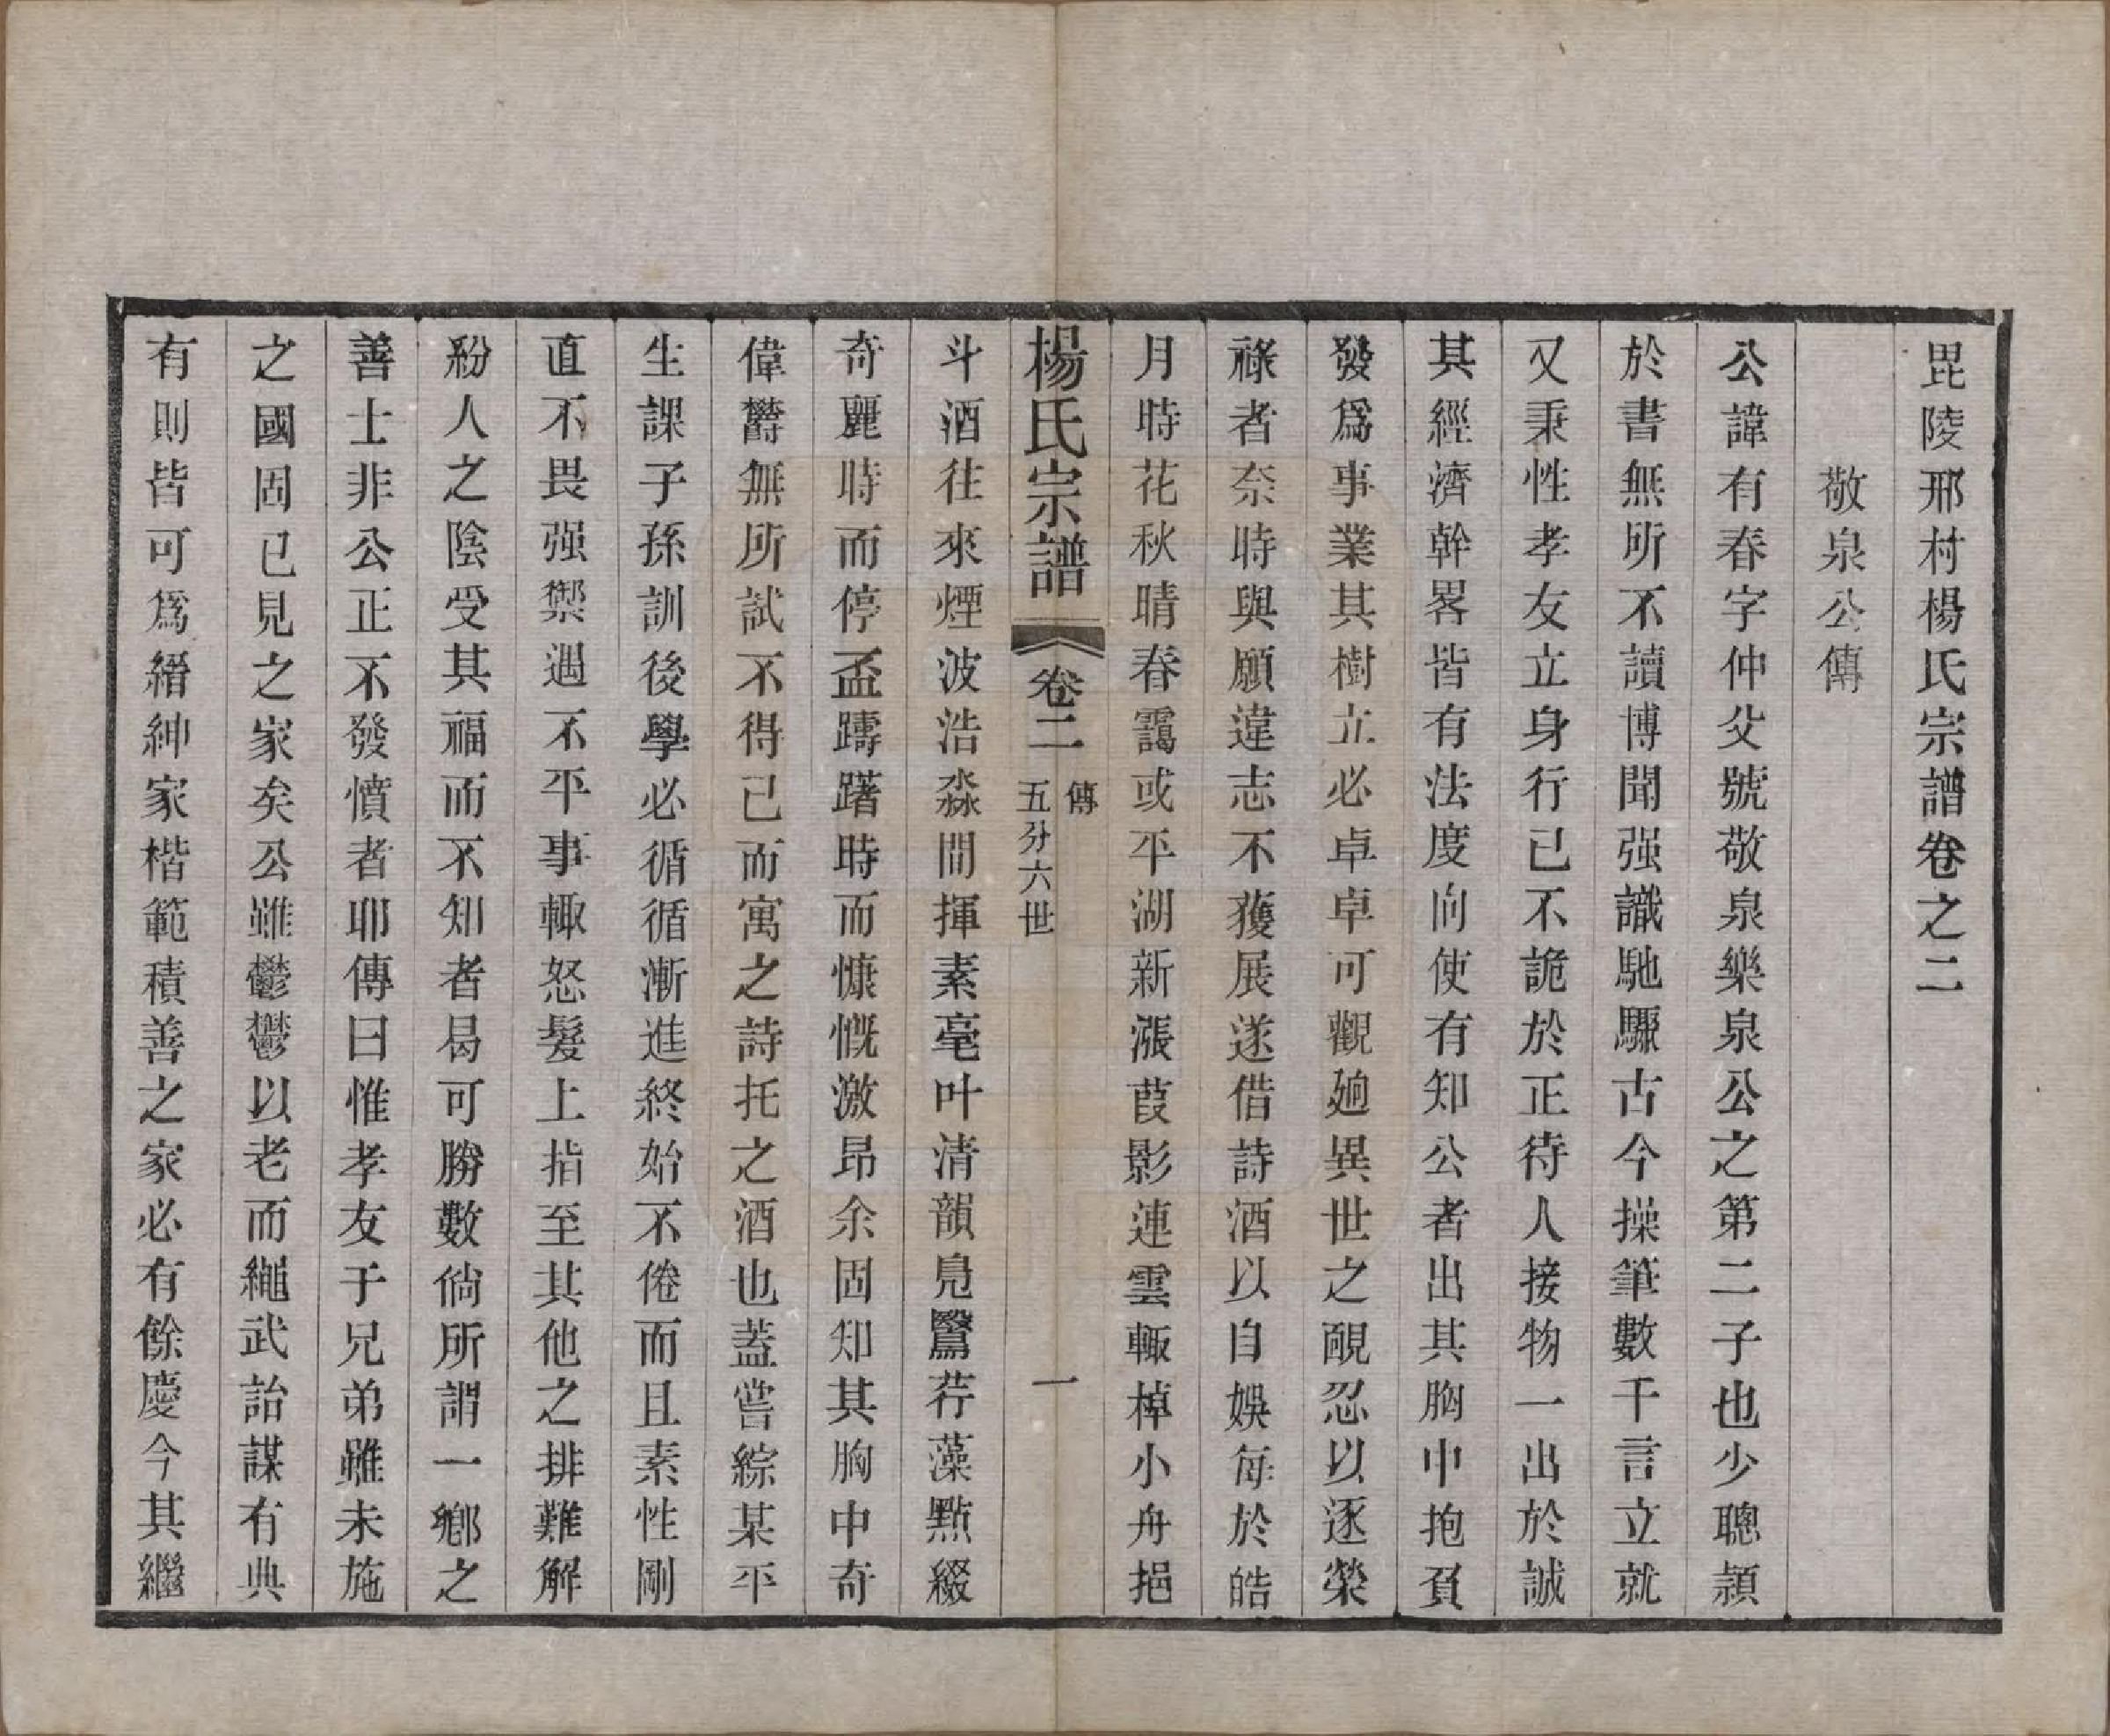 毘陵邢村楊氏宗譜卷之二
敬泉公傳
公諱有春字仲父號敬泉樂泉公之第二子也少聰頴
於書無所不讀博聞强識馳驟古今操筆數千言立就
又秉性孝友立身行已不詭於正待人接物一出於誠
其經濟幹畧皆有法度向使有知公者出其胸中抱負
發爲事業其樹立必卓卓可觀廼異世之覥忍以逐榮
祿者奈時與願違志不獲展遂借詩酒以自娛每於皓
月時花秋晴春靄或平湖新漲葭影連雲輙棹小舟挹
楊氏宗譜
卷二
傳
五分六世
一
斗酒往來煙波浩淼間揮素毫叶清韻鳧鷖荇藻點綴
奇麗時而停盃躊躇時而慷慨激昂余固知其胸中奇
偉欝無所試不得已而寓之詩托之酒也蓋嘗綜某平
生課子孫訓後學必循循漸進終始不倦而且素性剛
直不畏强禦遇不平事輙怒髮上指至其他之排難解
紛人之陰受其福而不知者曷可勝數倘所謂一鄉之
善士非公正不發憤者耶傳曰惟孝友于兄弟雖未施
之國固已見之家矣公雖鬱鬱以老而繩武詒謀有典
有則皆可爲縉紳家楷範積善之家必有餘慶今其繼